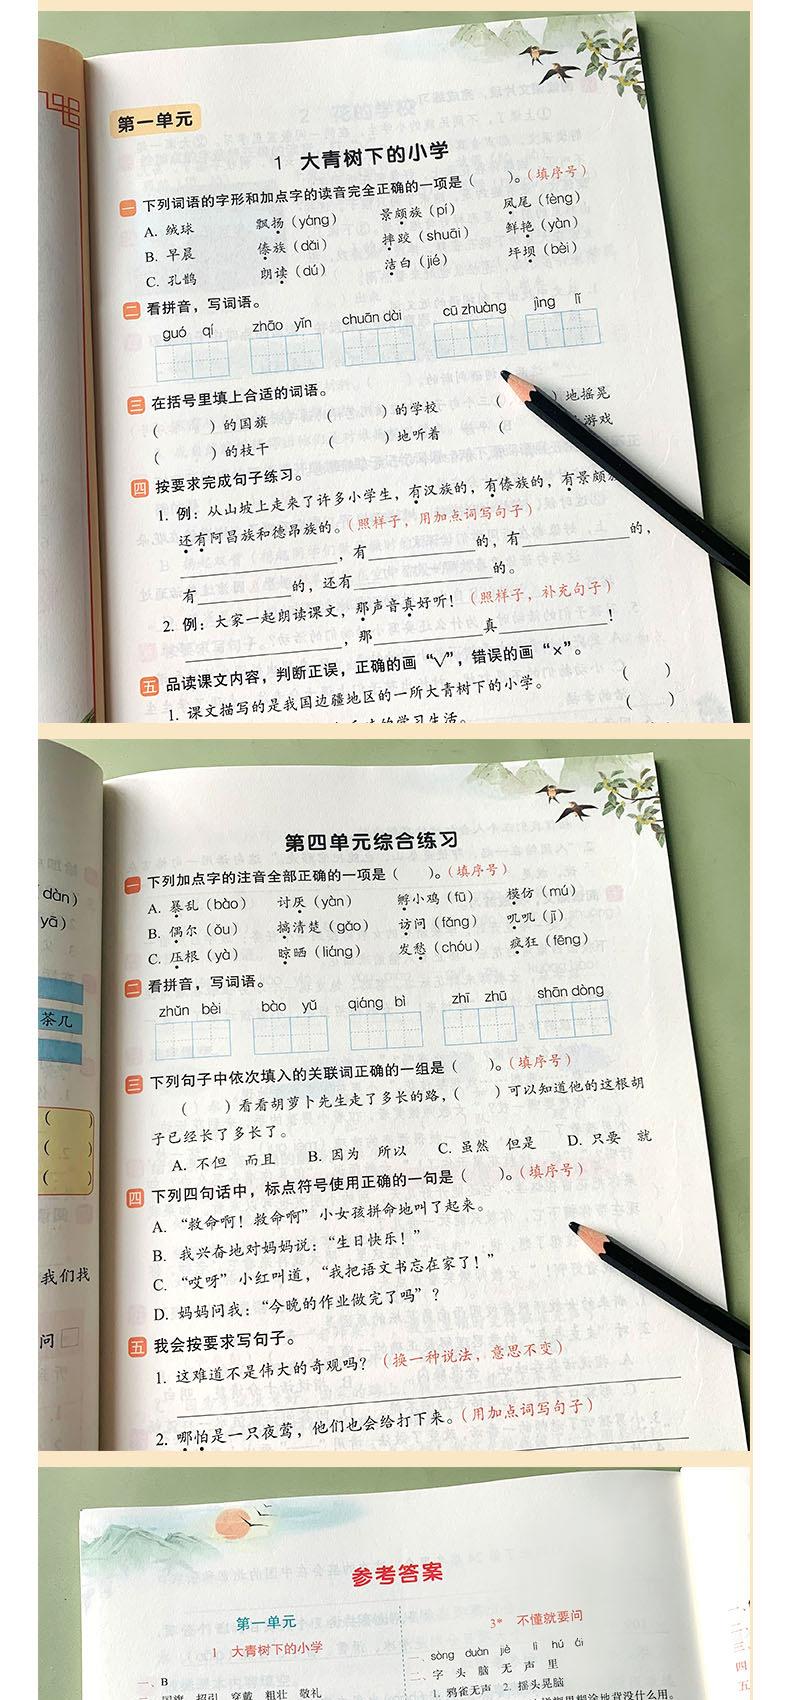 第一单元
1 大青树下的小学
一 下列词语的字形和加点字的读音完全正确的一项是（ ）。（填序号）
A. 绒球 飘扬（yáng） 景颇族（pí） 凤尾（fèng）
B. 早晨 傣族（dǎi） 摔跤（shuāi） 鲜艳（yàn）
C. 孔鹊 朗读（dú） 洁白（jié） 坪坝（bèi）
二 看拼音，写词语。
guó qí zhāo yǐn chuān dài cū zhuàng jìng lǐ
三 在括号里填上合适的词语。
（ ）的国旗 （ ）的学校 （ ）地摇晃
（ ）的枝干 （ ）地听着 （ 游戏
四 按要求完成句子练习。
1. 例：从山坡上走来了许多小学生，有汉族的，有傣族的，有景颇
还有阿昌族和德昂族的。（照样子，用加点词写句子）
，有 的，有 的，
有 的，还有 的。
2. 例：大家一起朗读课文，那声音真好听！（照样子，补充句子）
，那 真 ！
五 品读课文内容，判断正误，正确的画“√”，错误的画“×”。
1. 课文描写的是我国边疆地区的一所大青树下的小学。 （ ）
的学习生活。 （ ）
dàn）
yā）
茶几
（ ）
（ ）
（ ）
我们找
问
第四单元综合练习
一 下列加点字的注音全部正确的一项是（ ）。（填序号）
A. 暴乱（bào） 讨厌（yàn） 孵小鸡（fū） 模仿（mú）
B. 偶尔（ǒu） 搞清楚（gǎo） 访问（fǎng） 叽叽（jī）
C. 压根（yà） 晾晒（liáng） 发愁（chóu） 疯狂（fēng）
二 看拼音，写词语。
zhǔn bèi bào yǔ qiáng bì zhī zhū shān dòng
三 下列句子中依次填入的关联词正确的一组是（ ）。（填序号）
（ ）看看胡萝卜先生走了多长的路，（ ）可以知道他的这根胡
子已经长了多长了。
A. 不但 而且 B. 因为 所以 C. 虽然 但是 D. 只要 就
四 下列四句话中，标点符号使用正确的一句是（ ）。（填序号）
A. “救命啊！救命啊”小女孩拼命地叫了起来。
B. 我兴奋地对妈妈说：“生日快乐！”
C. “哎呀”小红叫道，“我把语文书忘在家了！”
D. 妈妈问我：“今晚的作业做完了吗”？
五 我会按要求写句子。
1. 这难道不是伟大的奇观吗？（换一种说法，意思不变）
2. 哪怕是一只夜莺，他们也会给打下来。（用加点词写句子）
参考答案
第一单元
1 大青树下的小学
一、B
国旗 招引 穿戴 粗壮 敬礼
3* 不懂就要问
一、sòng duàn jiè lì hú
二、字 头 脑 无 声 里
1. 鸦雀无声 2. 摇头晃脑
糊里糊涂地背没什么用。
一、
二、
三、
四
五